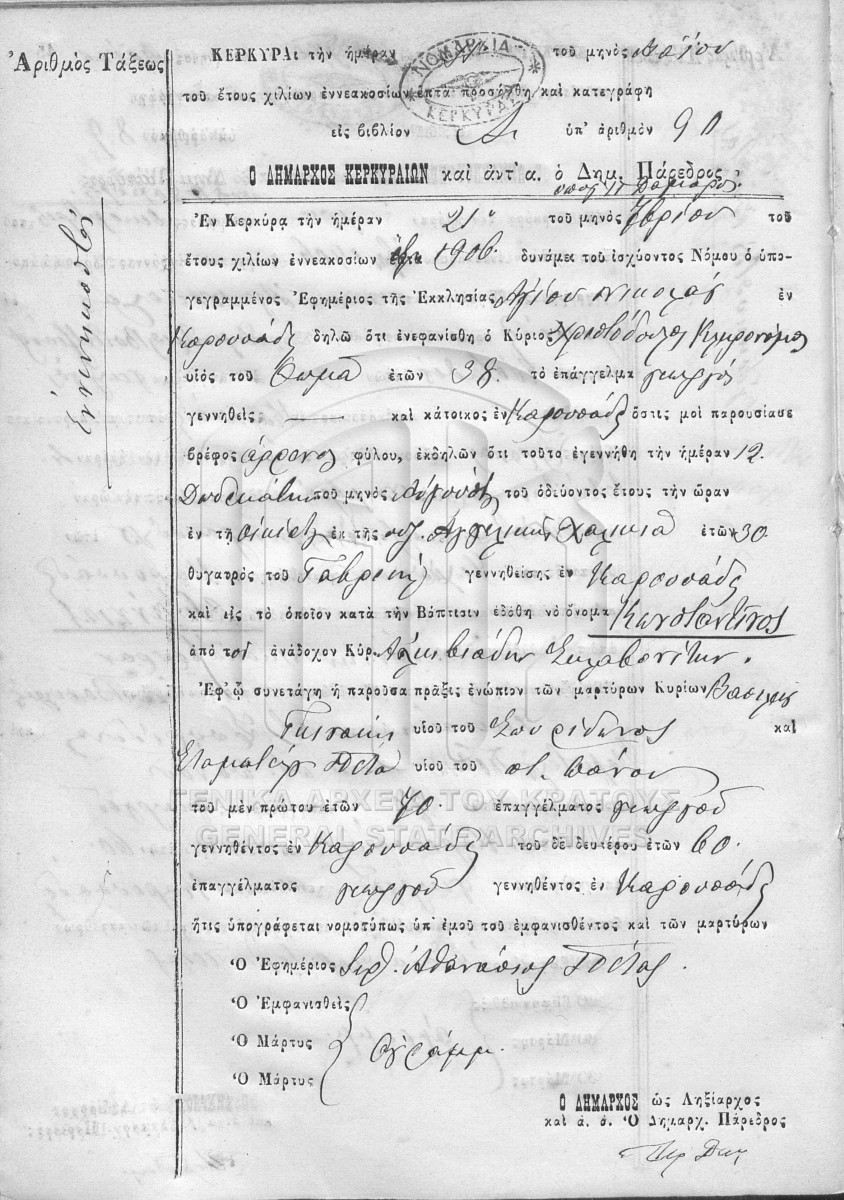 Ἀριθμὸς Τάξεως
ἐνενηκοστὸς
ΚΕΡΚΥΡΑι τὴν ἡμέραν τοῦ μηνὸς
ΝΟΜΑΡΧΙΑ ΚΕΡΚΥΡΑΣ
τοῦ ἔτους χιλίων ἐννεακοσίων ἑπτὰ προσήχθη καὶ κατεγράφη
εἰς βιβλίον ὑπ' ἀριθμὸν 90
Ο ΔΗΜΑΡΧΟΣ ΚΕΡΚΥΡΑΙΩΝ καὶ ἀντ' α. ὁ Δημ. Πάρεδρος
Ἐν Κερκύρᾳ τὴν ἡμέραν 21 τοῦ μηνὸς 7βρίου τοῦ
ἔτους χιλίων ἐννεακοσίων ἑπτὰ 1906 δυνάμει τοῦ ἰσχύοντος Νόμου ὁ ὑπο-
γεγραμμένος Ἐφημέριος τῆς Ἐκκλησίας Ἁγίου Νικολάου ἐν
Καρουσάδες δηλῶ ὅτι ἐνεφανίσθη ὁ Κύριος Χριστόδουλος Κληρονόμος
υἱὸς τοῦ Θωμᾶ ἐτῶν 38. τὸ ἐπάγγελμα γεωργός
γεννηθεὶς — καὶ κάτοικος ἐν Καρουσάδες ὅστις μοὶ παρουσίασε
βρέφος ἄρρενος φύλου, ἐκδηλῶν ὅτι τοῦτο ἐγεννήθη τὴν ἡμέραν 12.
Δωδεκάτην τοῦ μηνὸς Αὐγούστου τοῦ ὁδιύοντος ἔτους τὴν ὥραν
ἐν τῇ οἰκίᾳ ἐκ τῆς συζ. Ἀγγελικῆς ἐτῶν 30
θυγατρὸς τοῦ Γαβριήλ γεννηθείσης ἐν Καρουσάδες
καὶ εἰς τὸ ὁποῖον κατὰ τὴν Βάπτισιν ἐδόθη τὸ ὄνομα Κωνσταντῖνος
ἀπὸ τὸν ἀνάδοχον Κύρ. Ἀλκιβιάδην Σκλαβουνίτην.
Ἐφ' ᾧ συνετάγη ἡ παροῦσα πρᾶξις ἐνώπιον τῶν μαρτύρων Κυρίων
υἱοῦ τοῦ Σπυρίδωνος καὶ
υἱοῦ τοῦ
ΓΕΝΙΚΑ ΑΡΧΕΙΑ ΤΟΥ ΚΡΑΤΟΥΣ
τοῦ μὲν πρώτου ἐτῶν 70. ἐπαγγέλματος γεωργοῦ
GENERAL STATE ARCHIVES
γεννηθέντος ἐν Καρουσάδες τοῦ δὲ δευτέρου ἐτῶν 60.
ἐπαγγέλματος γεωργοῦ γεννηθέντος ἐν Καρουσάδες
ἥτις ὑπογράφεται νομοτύπως ὑπ' ἐμοῦ τοῦ ἐμφανισθέντος καὶ τῶν μαρτύρων
Ὁ Ἐφημέριος Ἀθανάσιος
Ὁ Ἐμφανισθεὶς
Ὁ Μάρτυς Ἀγράμμ.
Ὁ Μάρτυς
Ο ΔΗΜΑΡΧΟΣ ὡς Ληξίαρχος
καὶ ἀ. ἀ. Ὁ Δημαρχ. Πάρεδρος